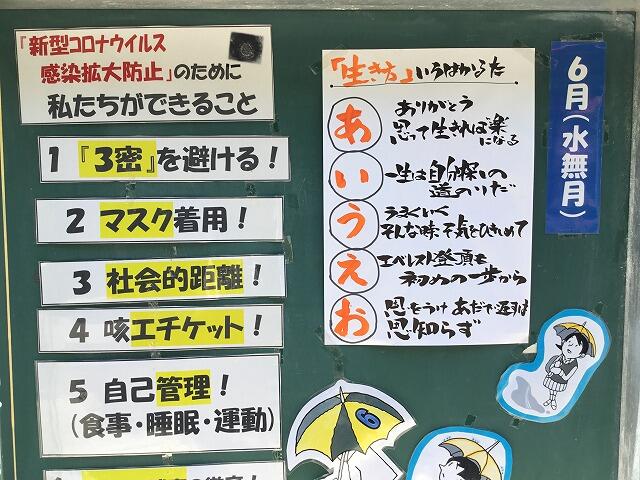 『新型コロナウイルス
感染拡大防止』のために
私たちができること
1 『3密』を避ける！
2 マスク着用！
3 社会的距離！
4 咳エチケット！
5 自己管理！
(食事・睡眠・運動)
「生き方」いろはかるた
あ ありがとう
思って生きれば楽
になる
い 一生は自分探しの
道のりだ
う うまくいく
そんな時こそ気をひきしめて
え エベレスト登頂も
初めの一歩から
お 恩をうけ あだで返すは
恩知らず
6月(水無月)
6